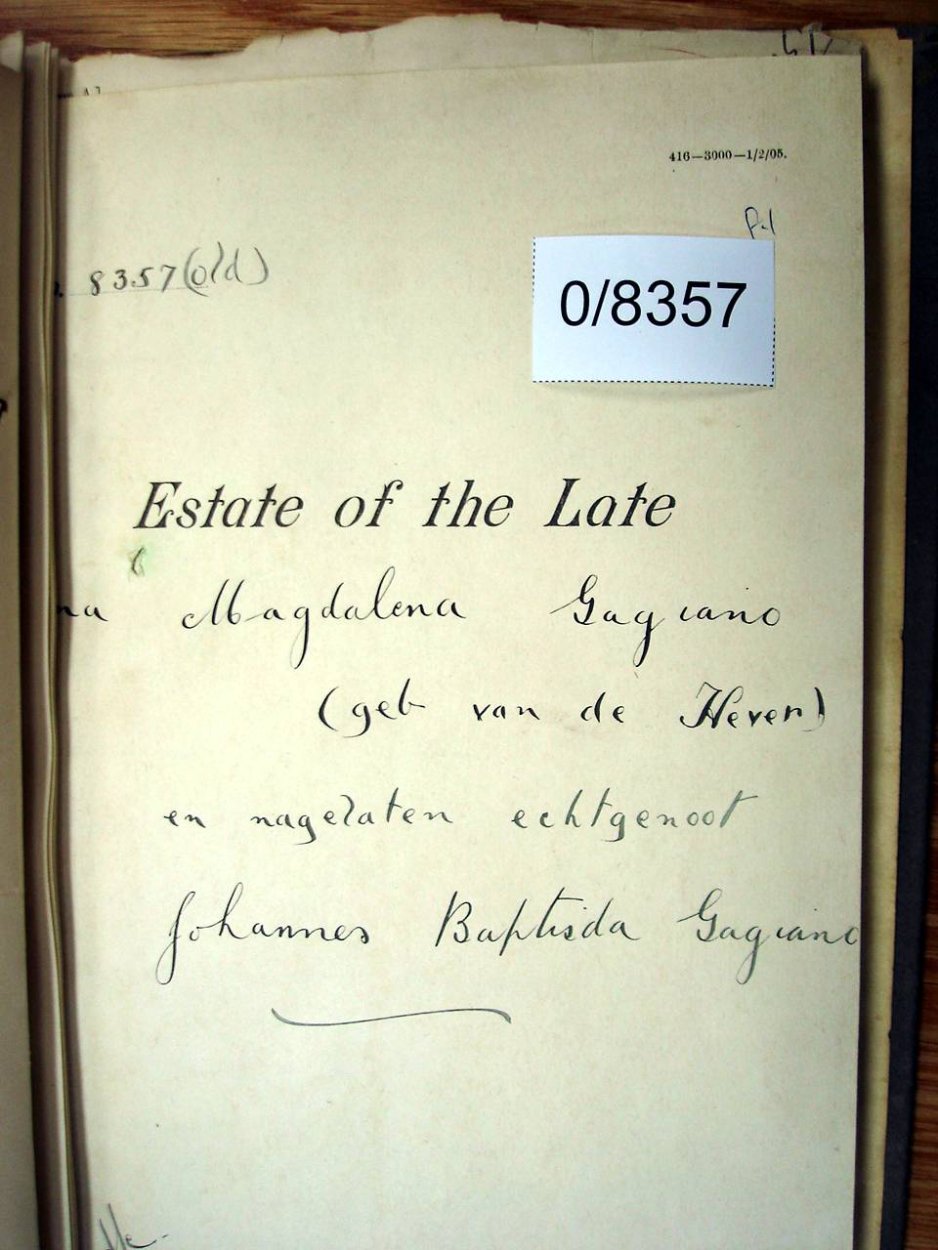 416—3000—1/2/05.
8357 (old)
0/8357
Estate of the Late
na Magdalena Gagiano
(geb van de Hever)
en nagelaten echtgenoot
Johannes Baptisda Gagiano